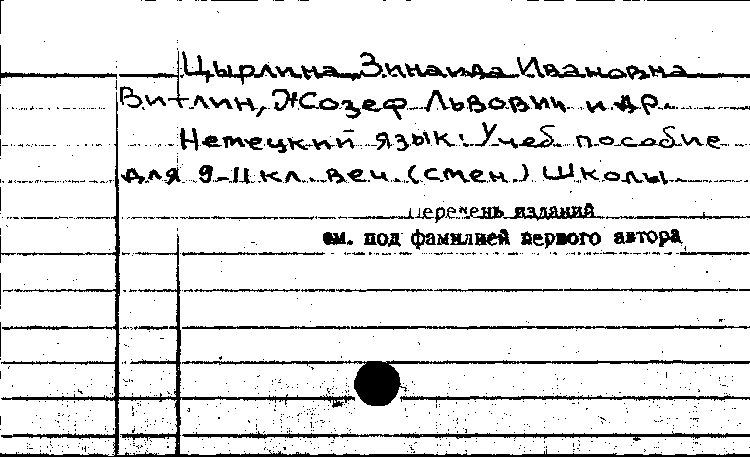 Цырлина, Зинаида Ивановна
Витлин, Жозеф Львович и др.
Немецкий язык: Учеб. пособие
для 9-11 кл. веч. (смен.) школы.
Перечень изданий
см. под фамилией первого автора